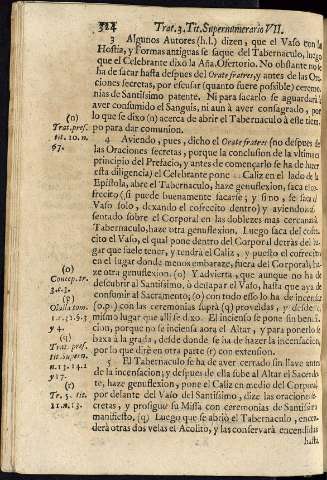 324 Trat.3.Tit.Supernumerario VII.
3 Algunos Autores (h.l.) dizen, que el Vaso con la
Hostia, y Formas antiguas se saque del Tabernaculo, luego
que el Celebrante dixo la Aña. Ofertorio. No obstante no se
ha de sacar hasta despues del Orate fratres, y antes de las Ora-
ciones secretas, por escusar (quanto fuere possible) ceremo-
nias de Santissimo patente. Ni para sacarlo se aguardarà à
aver consumido el Sanguis, ni aun à aver consagrado, por
lo que se dixo (n) acerca de abrir el Tabernaculo à este tiem-
po para dar comunion.
(n)
Trat.pres.
tit. 10. n.
67.
4 Aviendo, pues, dicho el Orate fratres (no despues de
las Oraciones secretas, porque la conclusion de la ultima es
principio del Prefacio, y antes de començarlo se ha de hazer
esta diligencia) el Celebrante pone el Caliz en el lado de la
Epistola, abre el Tabernaculo, haze genuflexion, saca el co-
frecito (si puede buenamente sacarse; y si no, se saca el
Vaso solo, dexando el cofrecito dentro) y aviendolo as-
sentado sobre el Corporal en las dobleces mas cercanas al
Tabernaculo, haze otra genuflexion. Luego saca del cofre-
cito el Vaso, el qual pone dentro del Corporal detras del lu-
gar que suele tener, y tendrà el Caliz, y puesto el cofrecito
en el lugar donde menos embaraze, fuera del Corporal, ha-
ze otra genuflexion. (o) Y advierta, que aunque no ha de
descubrir al Santissimo, ò destapar el Vaso, hasta que aya de
consumir al Sacramento; (o) con todo esso lo ha de incensar
(o.p.) con las ceremonias suprà (q) proveidas, y desde el
mismo lugar que allì se dixo. El incienso se pone sin bendi-
cion, porque no se inciensa aora el Altar, y para ponerlo se
baxa à la grada, desde donde se ha de hazer la incensacion,
por lo que dirè en otra parte (r) con extension.
(o)
Concep. tr.
3.c.3.
(p)
Olalla tom.
1.c.3.§.3
y 4.
(q)
Trat. pres.
tit. Supern.
n.13.14.
y 17.
(r)
Tr. 5. tit.
11.n.13.
5 El Tabernaculo se ha de aver cerrado sin llave antes
de la incensacion; y despues de ella sube al Altar el Sacerdo-
te, haze genuflexion, pone el Caliz en medio del Corporal
por delante del Vaso del Santissimo, dize las oraciones se-
cretas, y prosigue su Missa con ceremonias de Santissimo
manifiesto. (q) Luego que se abriò el Tabernaculo, encen-
derà otras dos velas el Acolito, y las conservarà encendidas
hasta